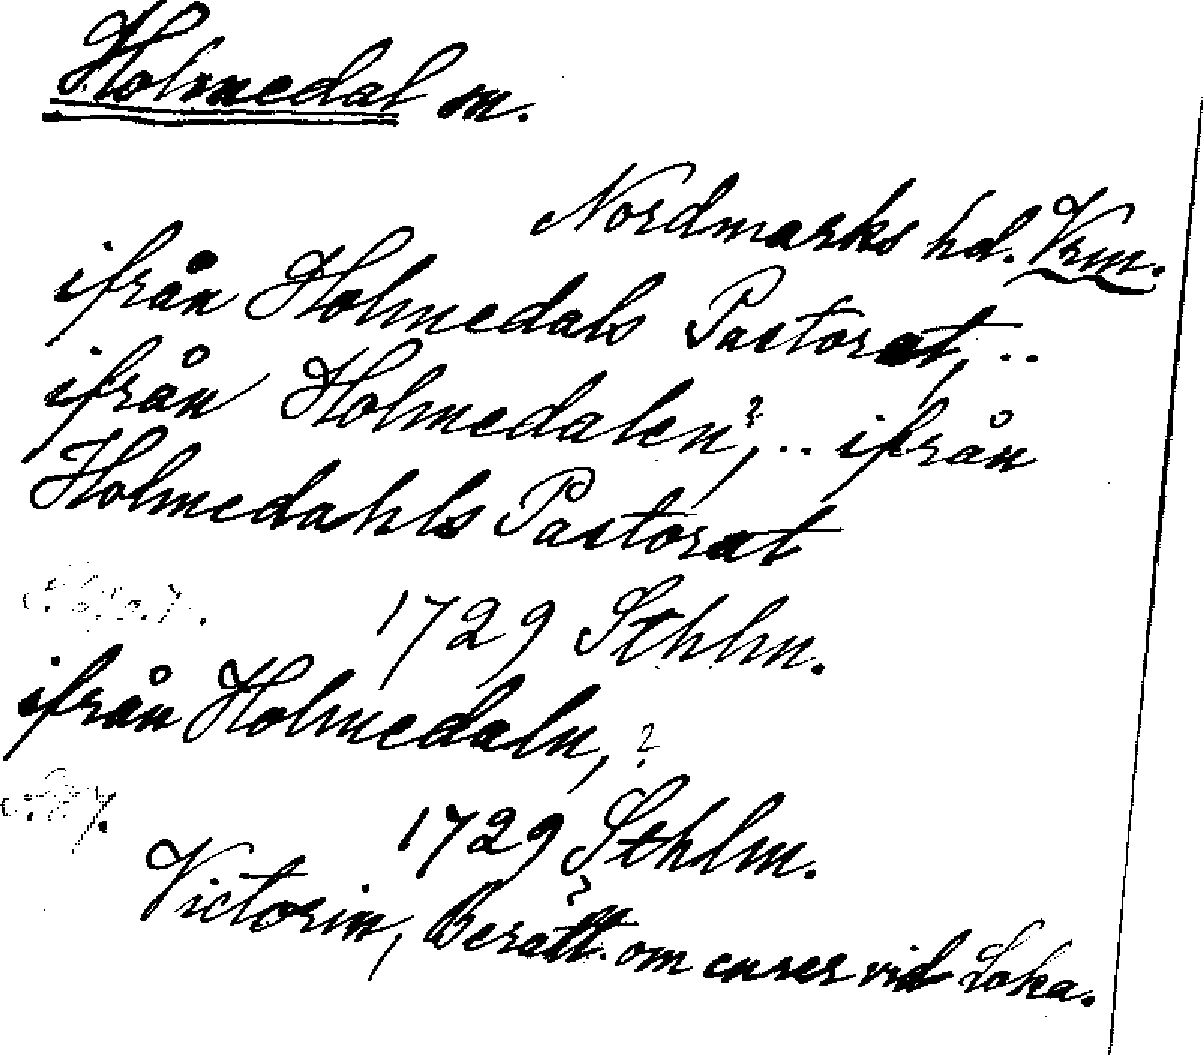 Holmedal sn.
Nordmarks hd. Vrm.
ifrån Holmedals Pastorat, ..
ifrån Holmedalen,? .. ifrån
Holmedahls Pastorat
1729 Sthlm.
ifrån Holmedaln, ?
1729 Sthlm.
Victorin, Berätt. om curer vid Loka.